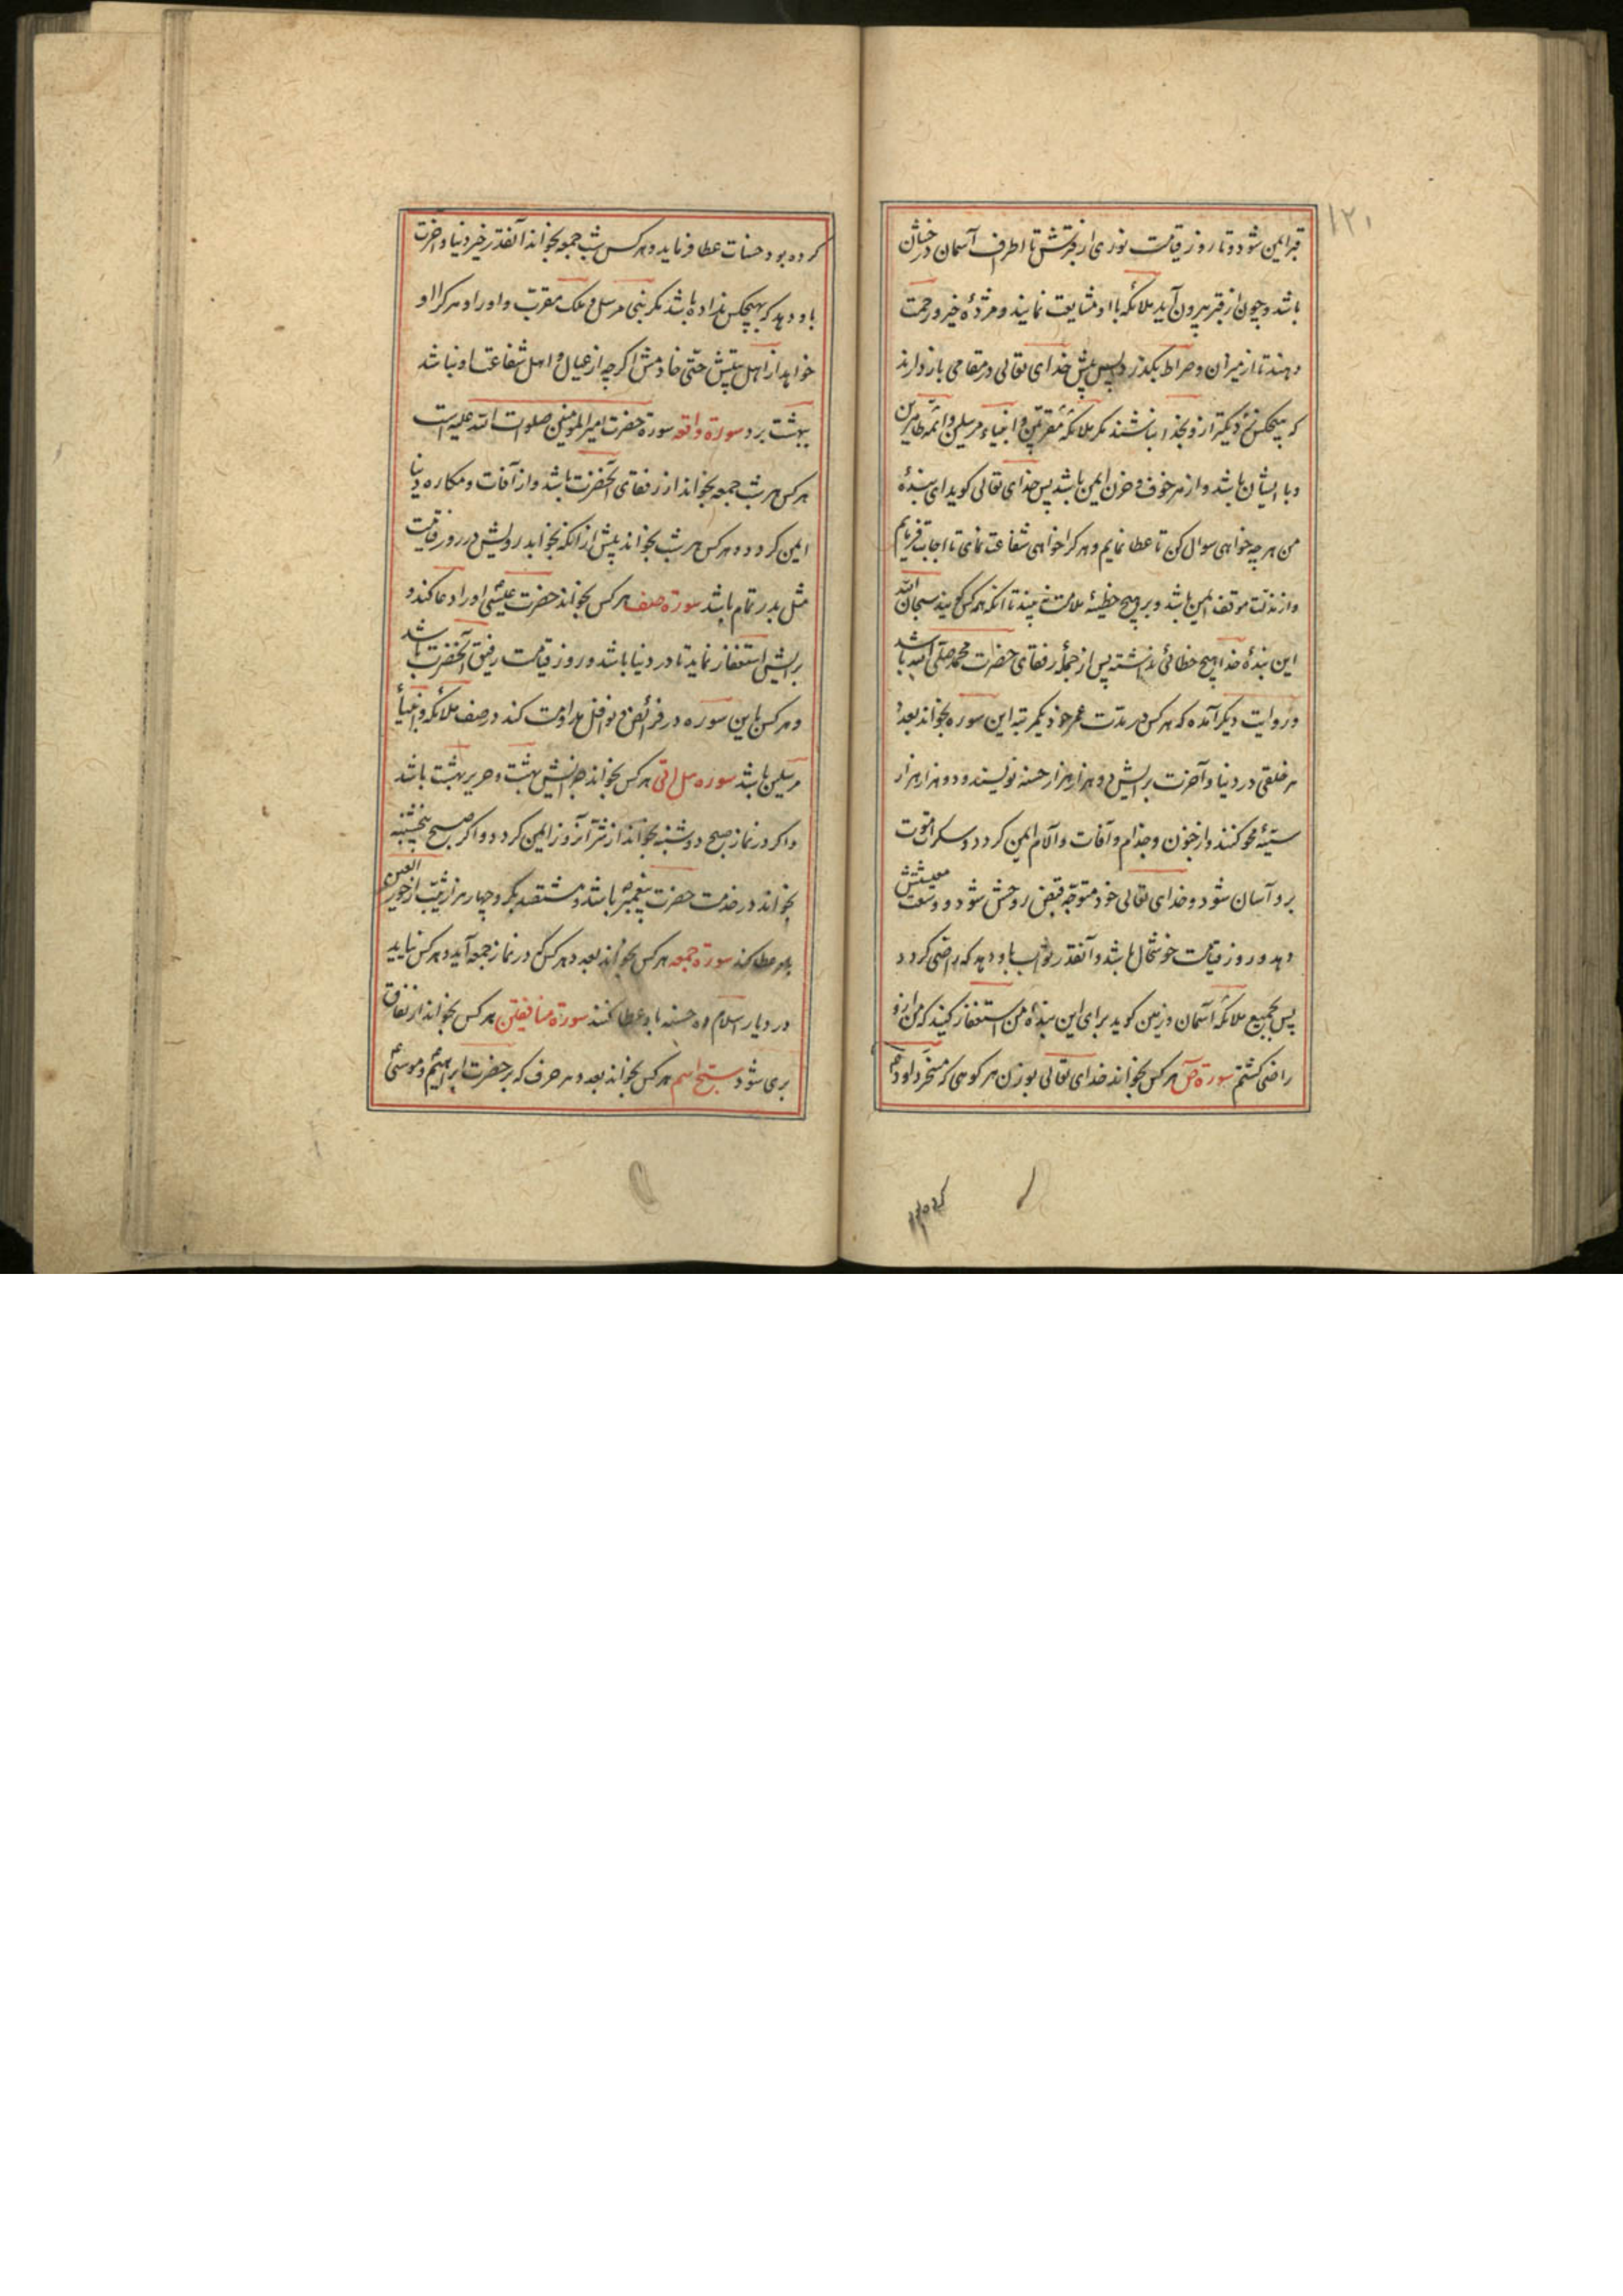 ۱۲۱
قبر ایمن شود و تا روز قیامت نوری از قبرش تا اطراف آسمان درخشان
باشد و چون از قبر بیرون آید ملائکه با او مشایعت نمایند و مژدهٔ خیر و رحمت
دهند تا از میزان و صراط بگذرد پس پیش خدای تعالی در مقامی باز دارند
که هیچکس نزدیکتر از و بخدا نباشند مکر ملائکهٔ مقربین و انبیاء مرسلین و ائمهٔ طاهرین
و با ایشان باشد و از هر خوف و حزن ایمن باشد پس خدای تعالی کوید ای بندهٔ
من هر چه خواهی سوال کن تا عطا نمایم و هر کرا خواهی شفاعت نمای تا اجابت فرمایم
و از مذلت موقف ایمن باشد و بر هیچ خطیئه ملامت نه بیند تا انکه همه کس کویند سبحان الله
این بندهٔ خدا هیچ خطائی نداشته پس از جملهٔ رفقای حضرت محمد صلی الله باشد
و روایت دیکر آمده که هر کس در مدت عمر خود یکمرتبه این سوره بخواند بعدد
هر خلقی در دنیا و آخرت برایش دو هزار هزار حسنه نویسند و دو هزار هزار
سیئه محو کنند و از جنون و جذام و آفات و آلام ایمن کردد و سکرات موت
برو آسان شود و خدای تعالی خود متوجه قبض روحش شود و وسعت معیشتش
دهد و روز قیامت خوشحال باشد و آنقدر ثواب باو دهد که راضی کردد
پس بجمیع ملائکه آسمان و زمین کوید برای این بندهٔ من استغفار کنید که من ازو
راضی کشتم سورهٔ ص هر کس بخواند خدای تعالی بوزن هر کوهی که مسخر داود
کرده بود
کرده بود حسنات عطا فرماید و هر کس شب جمعه بخواند آنقدر خیر دنیا و آخرت
باو دهد که بهیچکس نداده باشد مکر نبی مرسل و ملک مقرب و او را و هر کرا او
خواهد از اهل بیتش حتی خادمش اکر چه از عیال و اهل شفاعت او نباشد
ببهشت برد سورهٔ واقعه سورهٔ حضرت امیر المومنین صلوات الله علیه است
هر کس هر شب جمعه بخواند از رفقای آنحضرت باشد و از آفات و مکاره دنیا
ایمن کردد و هر کس هر شب بخواند پیش از انکه بخوابد رویش در روز قیامت
مثل بدر تمام باشد سورهٔ صف هر کس بخواند حضرت عیسی او را دعا کند و
برایش استغفار نماید تا در دنیا باشد و روز قیامت رفیق آنحضرت باشد
و هر کس باین سوره در فرائض و نوافل مداومت کند در صف ملائکه و انبیاء
مرسلین باشد سوره هل اتی هر کس بخواند جزایش بهشت و حریر بهشت باشد
و اکر در نماز صبح دوشنبه بخواند از شر آنروز ایمن کردد و اکر صبح پنجشنبه
بخواند در خدمت حضرت پیغمبر باشد و هشتصد بکر و چهار هزار ثیب از حور العین
باو عطا کند سورهٔ جمعه هر کس بخواند بعدد هر کس که در نماز جمعه آید و هر کس نیاید
در دیار اسلام ده حسنه باو عطا کنند سورهٔ منافقین هر کس بخواند از نفاق
بری شود سبح اسم هر کس بخواند بعدد هر حرف که بر حضرت ابراهیم و موسی